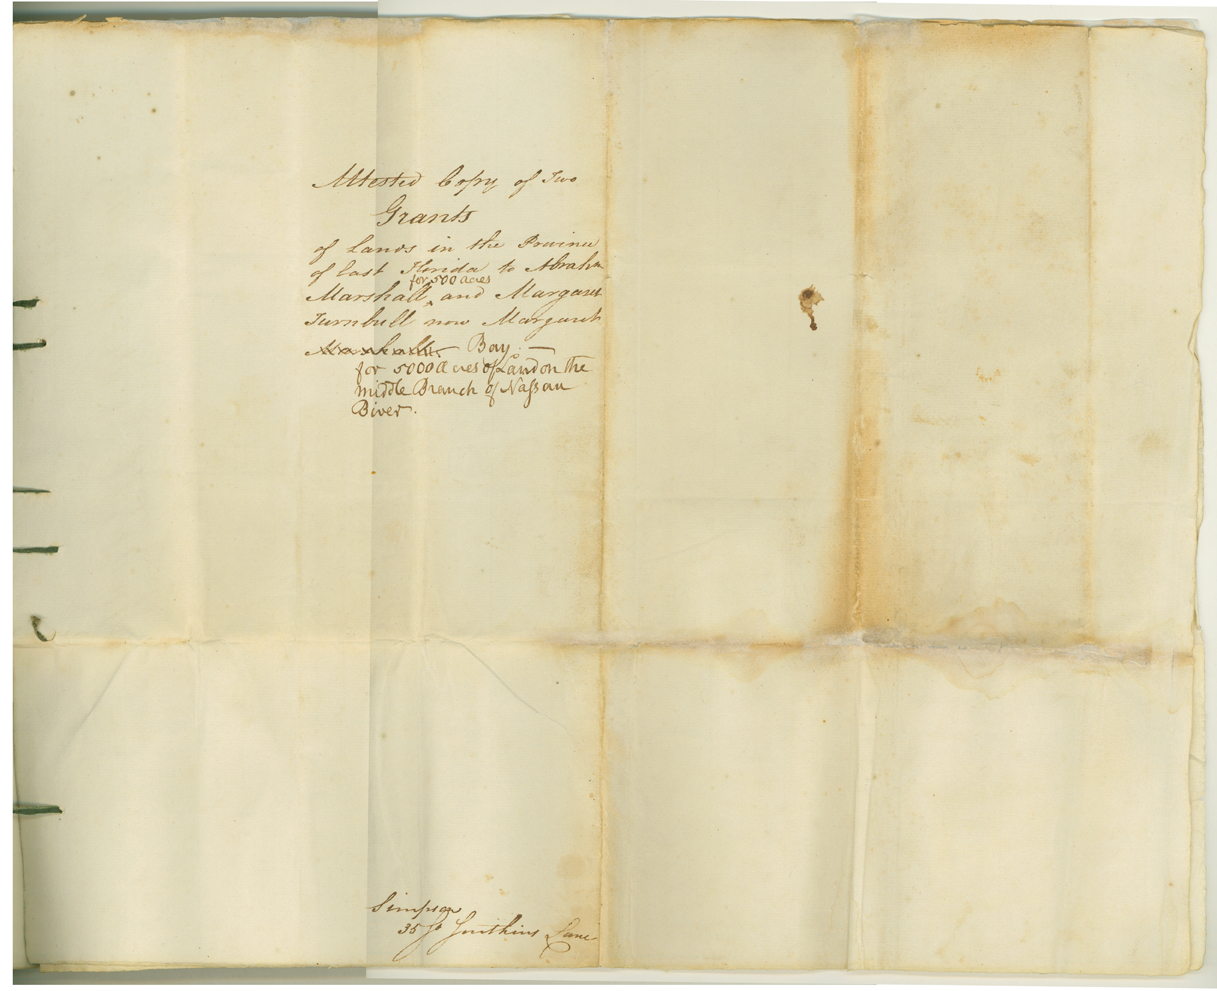 Attested Copy of Two
Grants
of Lands in the Province
of East Florida to Abraham
for 500 acres
Marshall, and Margaret
Turnbull now Margaret
Marshall Bay. —
for 5000 acres of Land on the
middle Branch of Nassau
River.
Simpson
35 St Swithins Lane